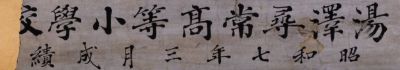 湯澤尋常高等小學校
昭和七年三月成績